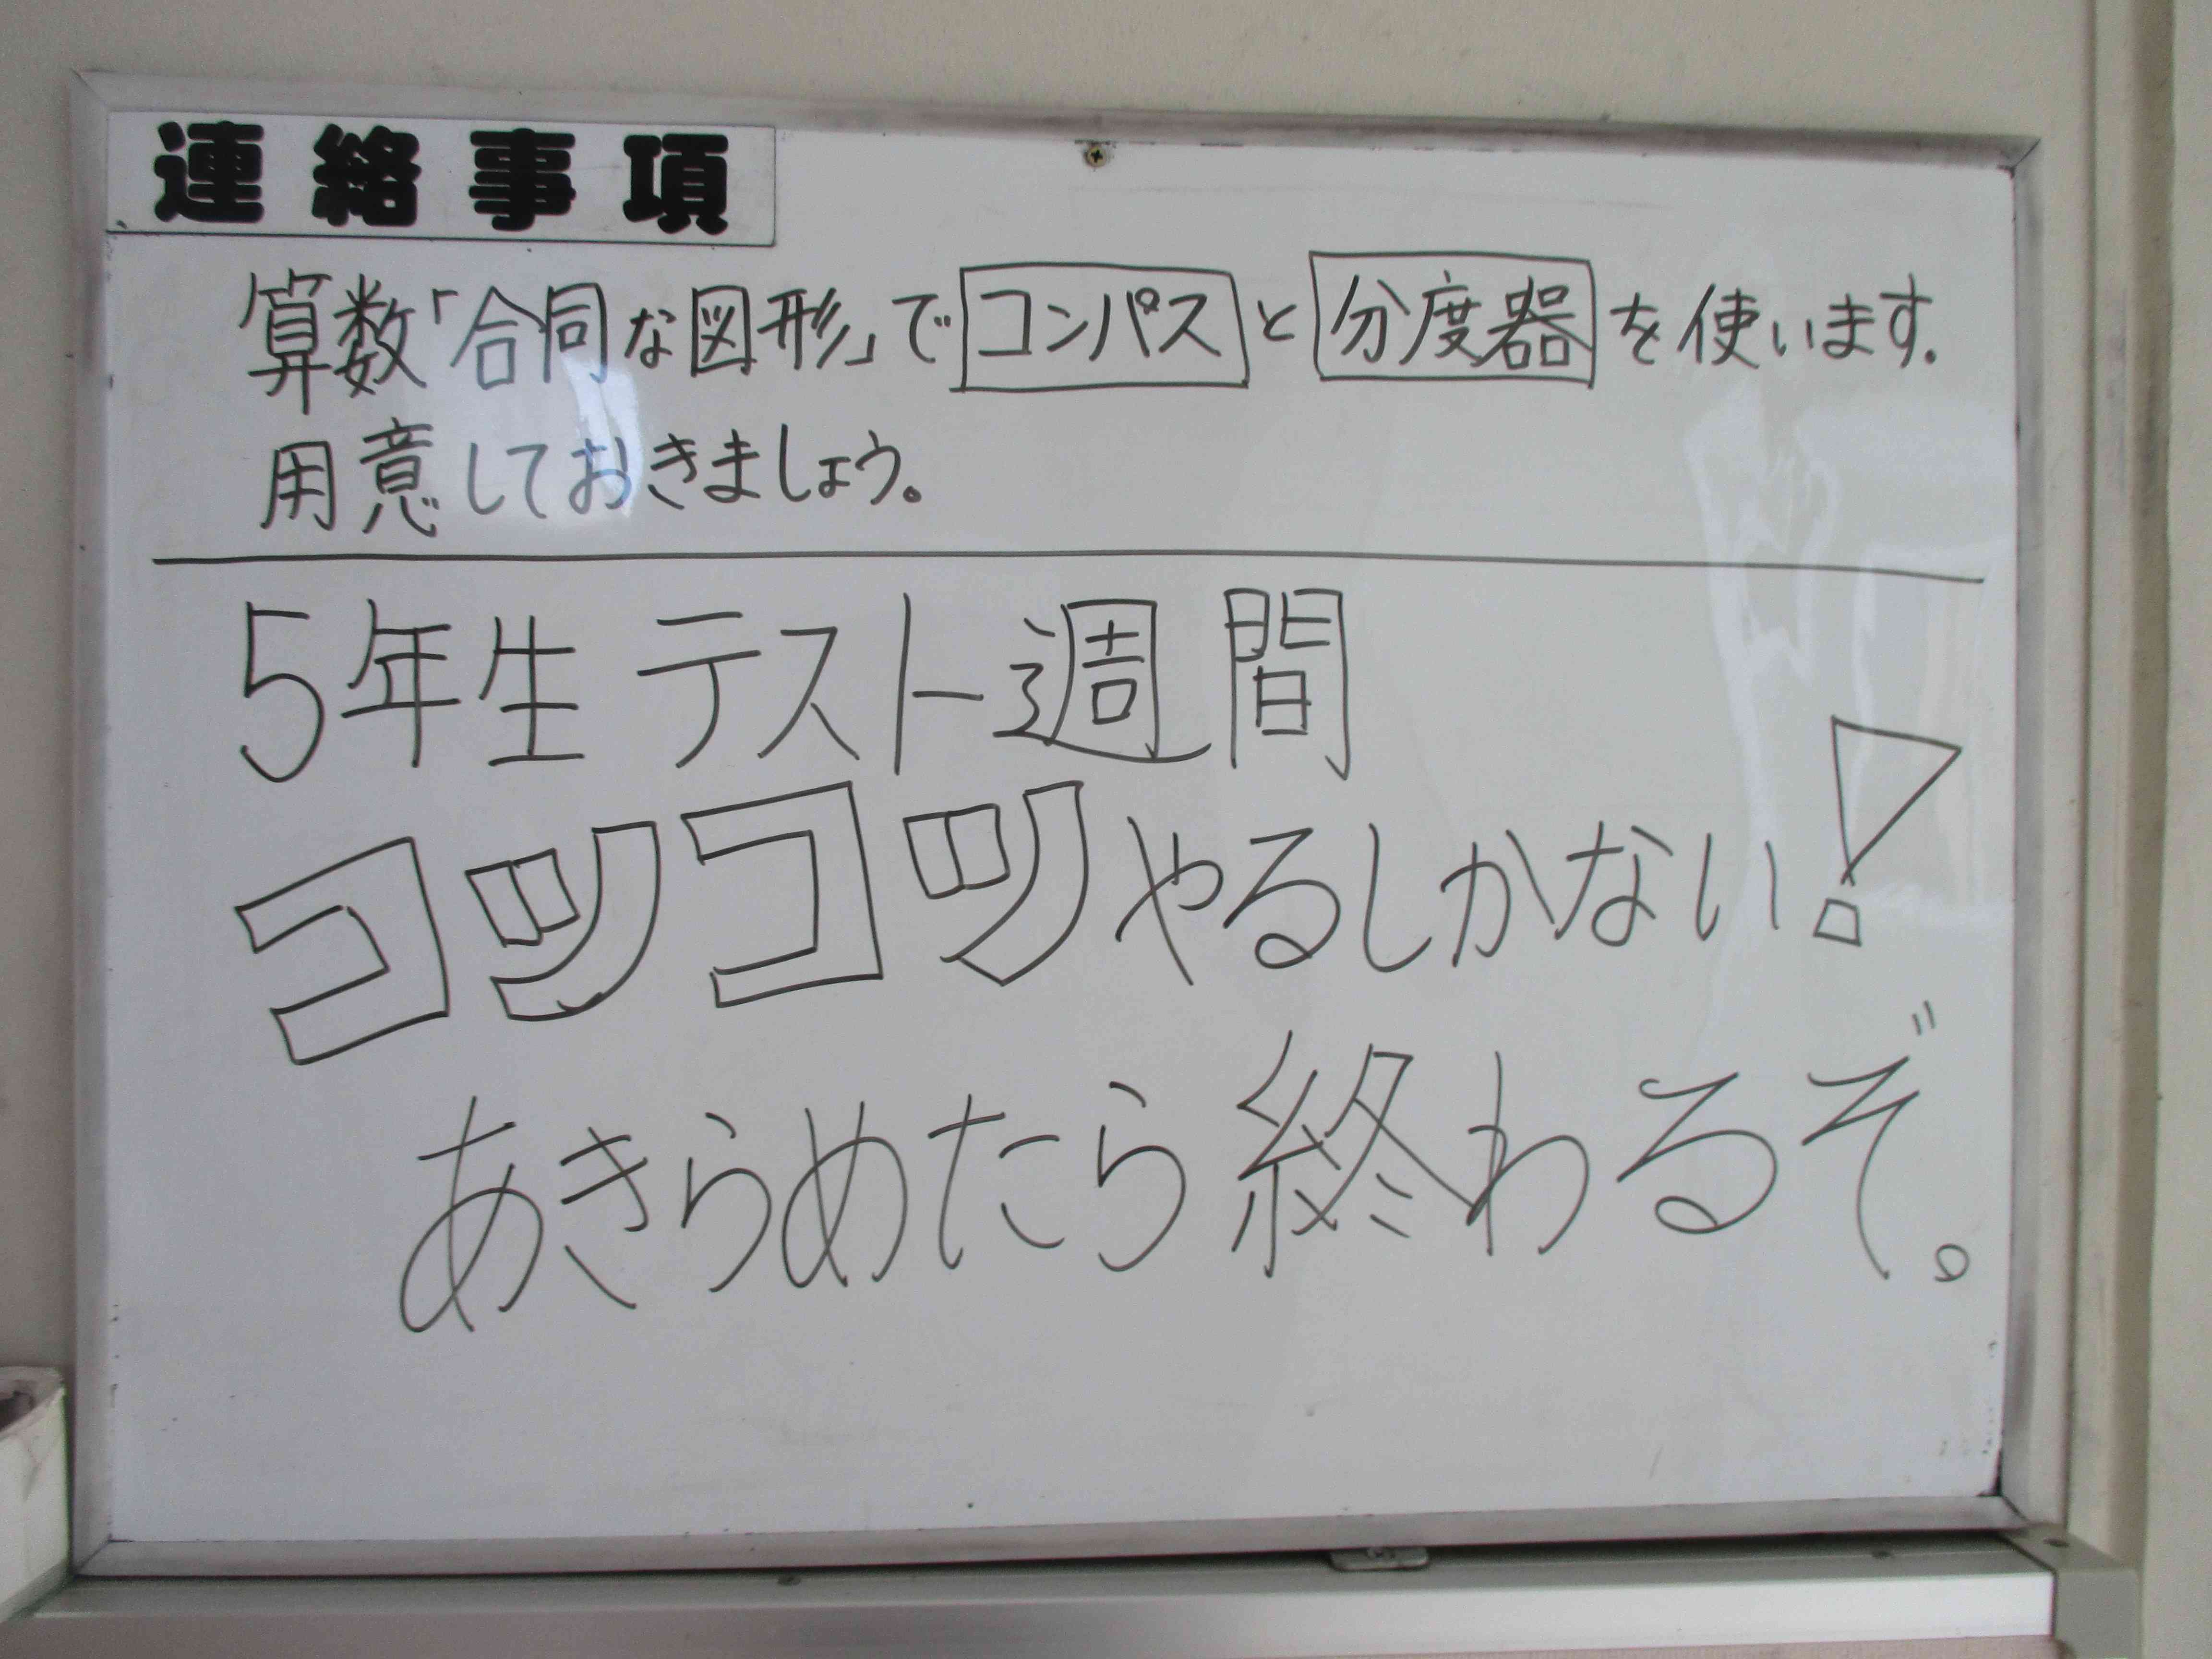 連絡事項
算数「合同な図形」でコンパスと分度器を使います.
用意しておきましょう。
5年生 テスト週間
コツコツやるしかない!
あきらめたら終わるぞ。